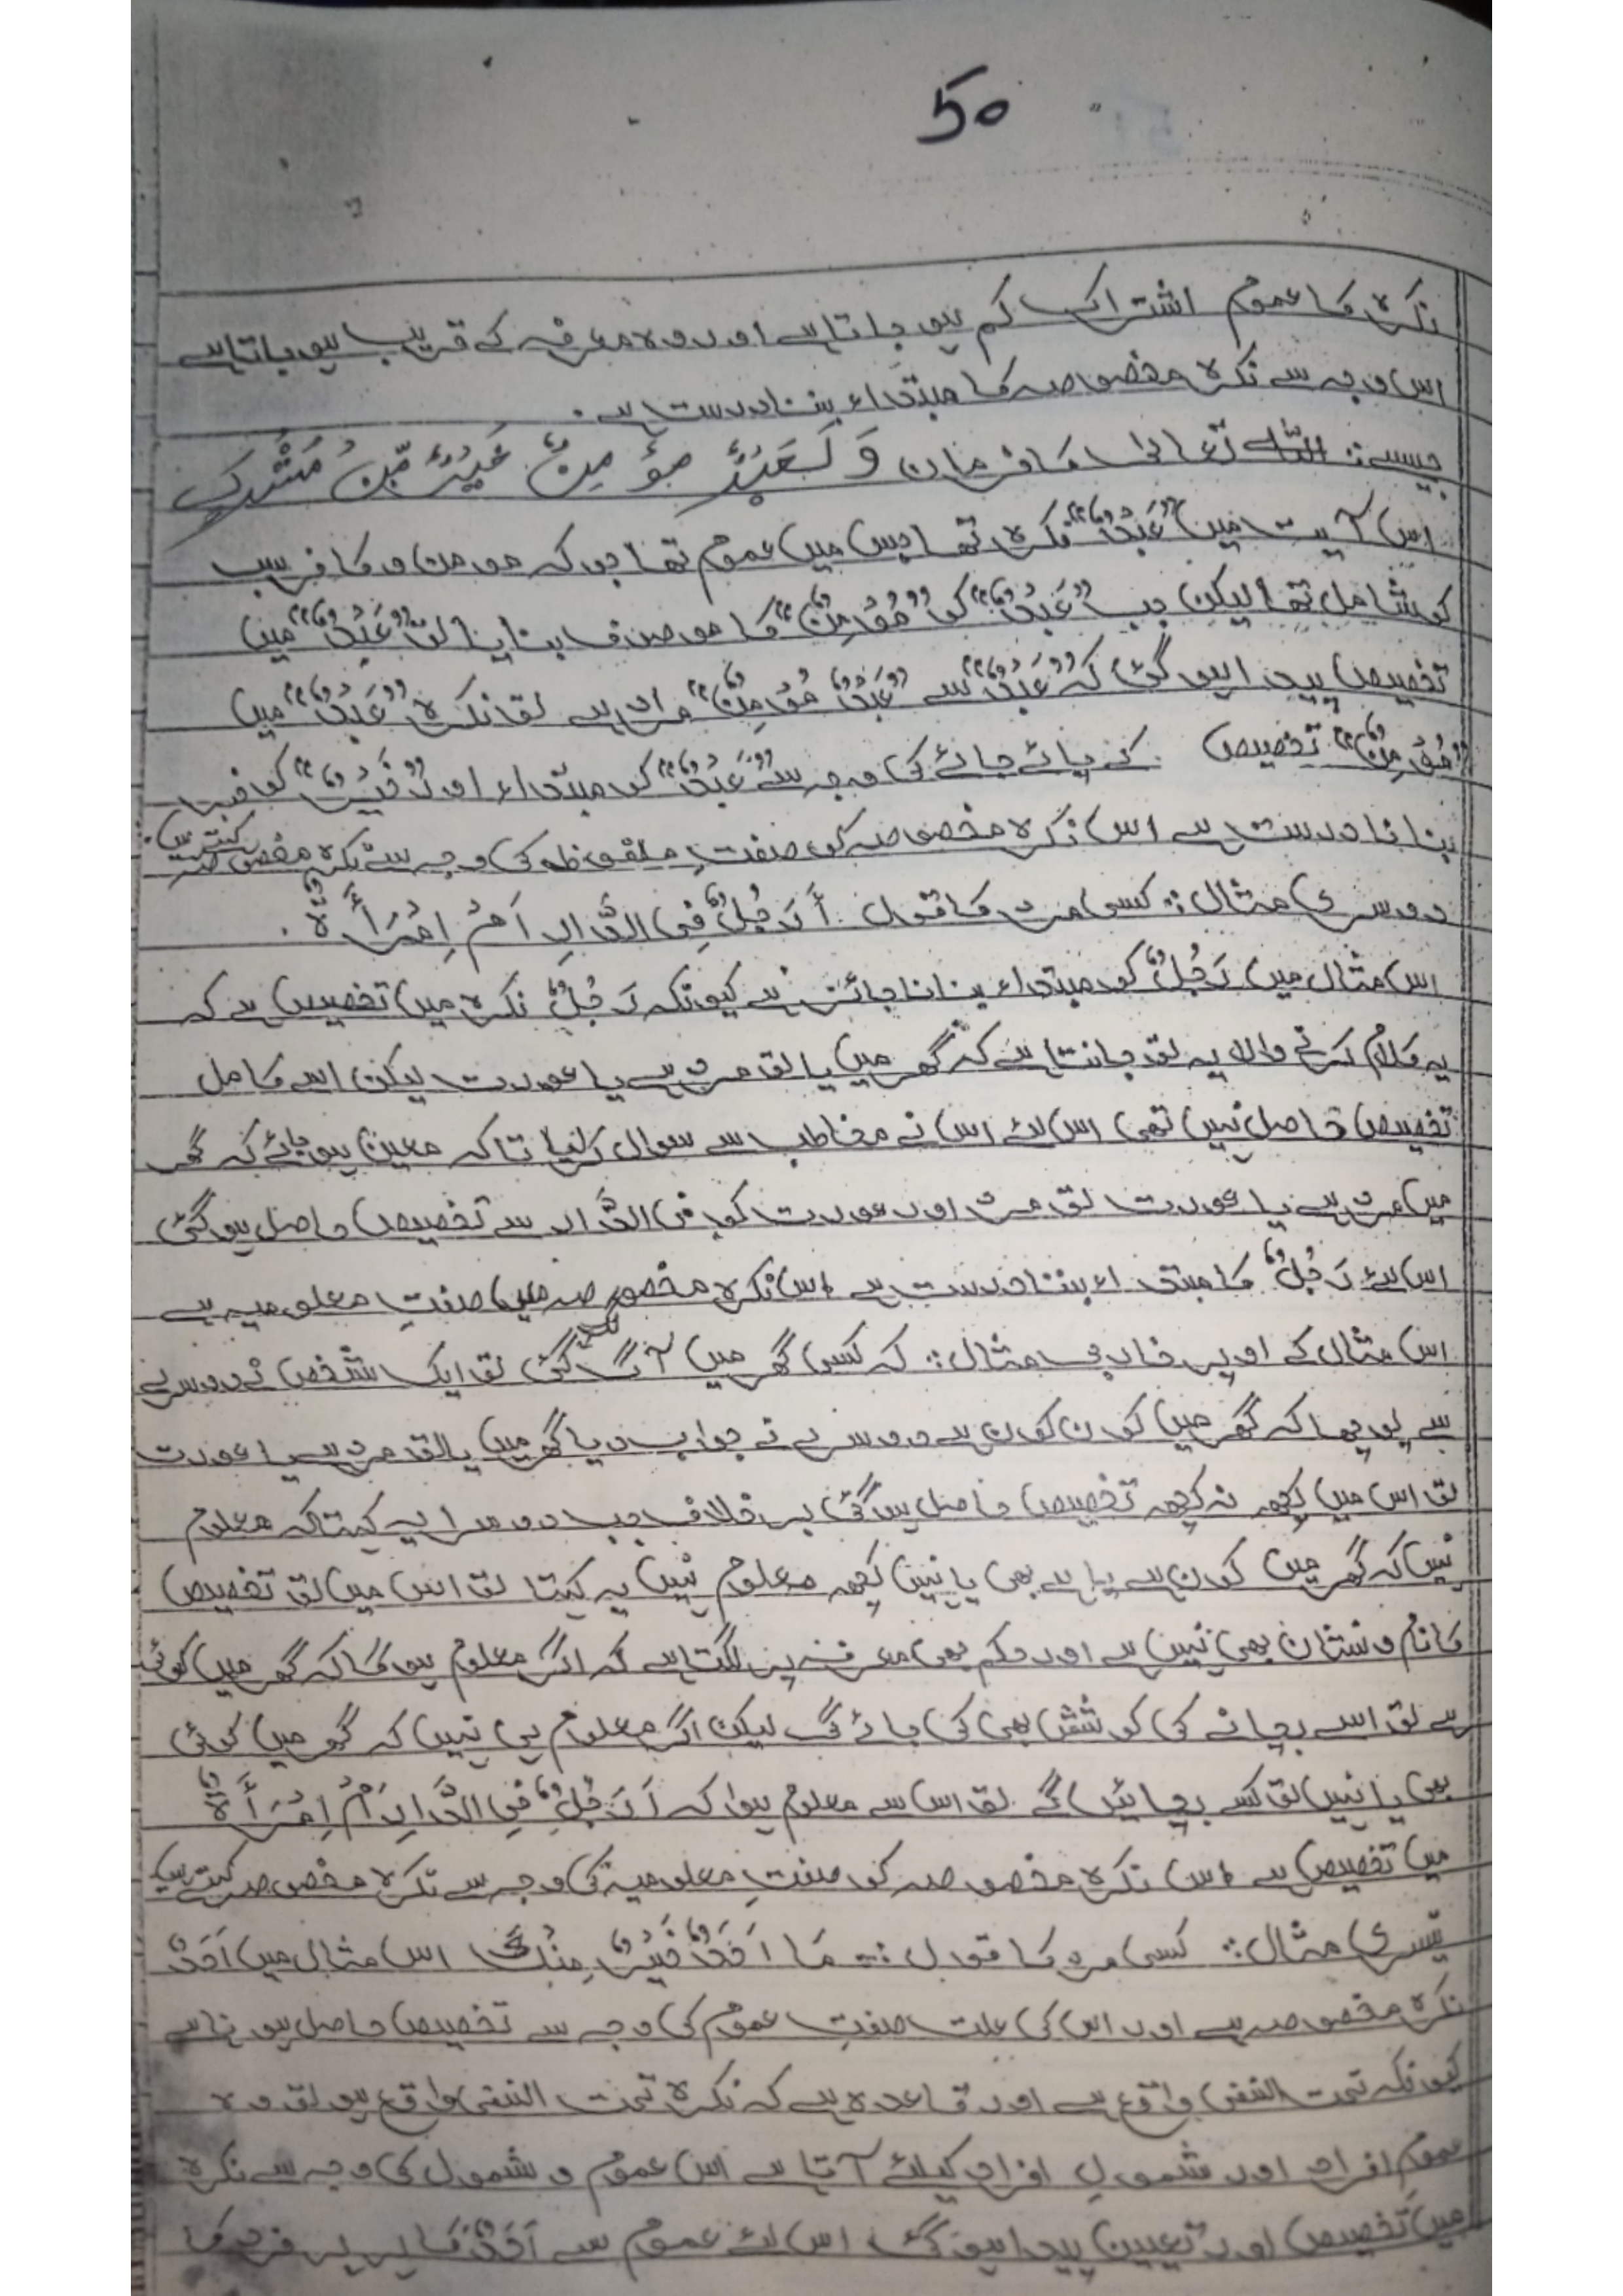 50
نکرہ کا عموم اشتراک کم ہو جاتا ہے اور وہ معرفہ کے قریب ہو جاتا ہے
اس وجہ سے نکرہ مخصوصہ کا مبتداء بننا درست ہے.
جیسے: اللہ تعالیٰ کا فرمان وَ لَعَبْدٌ مُؤْمِنٌ خَيْرٌ مِّنْ مُشْرِكٍ
اس آیت میں "عَبْدٌ" نکرہ تھا جس میں عموم تھا جو کہ مومن و کافر سب
کو شامل تھا لیکن جب "عَبْدٌ" کو "مُؤْمِنٌ" کا موصوف بنایا تو "عَبْدٌ" میں
تخصیص پیدا ہو گئی کہ "عَبْدٌ" سے "عَبْدٌ مُؤْمِنٌ" مراد ہے تو نکرہ "عَبْدٌ" میں
"مُؤْمِنٌ" تخصیص کے پائے جانے کی وجہ سے "عَبْدٌ" کو مبتداء اور "خَيْرٌ" کو خبر
بنانا درست ہے اس نکرہ مخصوصہ کو صفتِ ملفوظہ کی وجہ سے نکرہ مخصوصہ کہتے ہیں.
دوسری مثال:: کسی مرد کا قول أَرَجُلٌ فِی الدَّارِ اَمْ اِمْرَأَةٌ.
اس مثال میں رَجُلٌ کو مبتداء بنانا جائز ہے کیونکہ رَجُلٌ نکرہ میں تخصیص ہے کہ
یہ کلام کرنے والا یہ تو جانتا ہے کہ گھر میں یا تو مرد ہے یا عورت لیکن اسے کامل
تخصیص حاصل نہیں تھی اس لئے اس نے مخاطب سے سوال کیا تاکہ معین ہو جائے کہ گھر
میں مرد ہے یا عورت تو مرد اور عورت کو فی الدَّار سے تخصیص حاصل ہو گئی
اس لئے رَجُلٌ کا مبتداء بننا درست ہے اس نکرہ مخصوصہ میں صفتِ معلومیہ ہے
اس مثال کے اوپر خارجی مثال:: کہ کسی گھر میں آگ لگ گئی تو ایک شخص نے دوسرے
سے پوچھا کہ گھر میں کون کون ہے دوسرے نے جواب دیا گھر میں یا تو مرد ہے یا عورت
تو اس میں کچھ نہ کچھ تخصیص حاصل ہو گئی برخلاف جب دوسرا یہ کہتا کہ معلوم
نہیں کہ گھر میں کون ہے یا ہے بھی یا نہیں کچھ معلوم نہیں یہ کہتا تو اس میں تو تخصیص
کا نام و نشان بھی نہیں ہے اور حکم بھی معرفہ پر لگتا ہے کہ اگر معلوم ہو گا کہ گھر میں کوئی
ہے تو اسے بچانے کی کوشش بھی کی جائے گی لیکن اگر معلوم ہی نہیں کہ گھر میں کوئی
بھی یا نہیں تو کسے بچائیں گے تو اس سے معلوم ہوا کہ اَرَجُلٌ فِی الدَّارِ اَمْ اِمْرَأَةٌ
میں تخصیص ہے اس نکرہ مخصوصہ کو صفتِ معلومیہ کی وجہ سے نکرہ مخصوصہ کہتے ہیں
تیسری مثال:: کسی مرد کا قول :: مَا اَحَدٌ خَيْرٌ مِنْكَ اس مثال میں اَحَدٌ
نکرہ مخصوصہ ہے اور اس کی علت صفتِ عموم کی وجہ سے تخصیص حاصل ہونا ہے
کیونکہ تحت النفی واقع ہے اور قاعدہ ہے کہ نکرہ تحت النفی واقع ہو تو وہ
عموم افراد اور شمولِ افراد کیلئے آتا ہے اس عموم و شمول کی وجہ سے نکرہ
میں تخصیص اور تعیین پیدا ہو گئی اس لئے عموم سے اَحَدٌ کا ہر ہر فرد کا